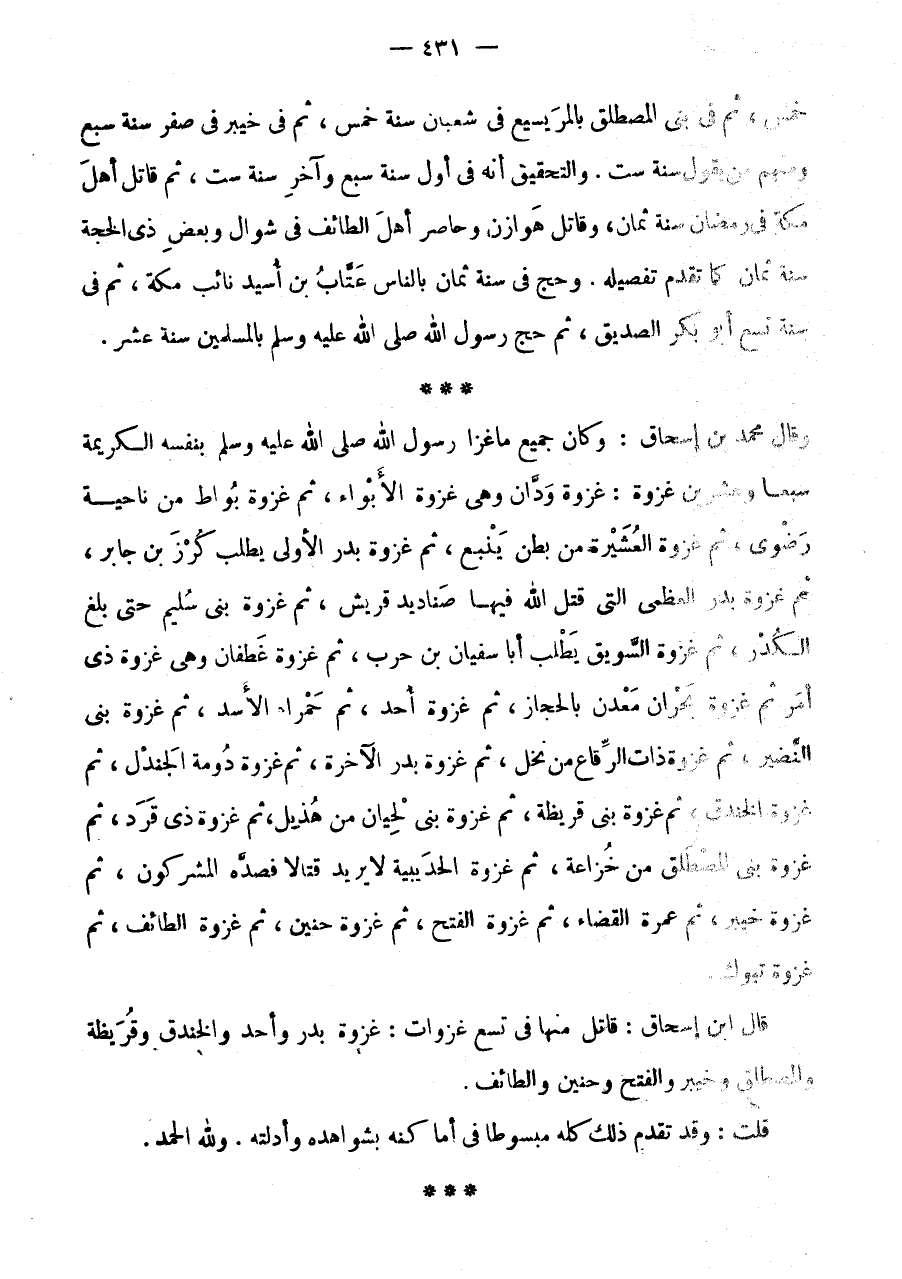 — ٤٣١ —
خمس ، ثم فى بنى المصطلق بالمرَيسيع فى شعبان سنة خمس ، ثم فى خيبر فى صفر سنة سبع
ومنهم من يقول سنة ست . والتحقيق أنه فى أول سنة سبع وآخرِ سنة ست ، ثم قاتل أهلَ
مكة فى رمضان سنة ثمان، وقاتل هَوازن وحاصر أهلَ الطائف فى شوال وبعضِ ذى الحجة
سنة ثمان كما تقدم تفصيله . وحج فى سنة ثمان بالناس عَتَّابُ بن أُسيد نائب مكة ، ثم فى
سنة تسع أبو بكر الصديق ، ثم حج رسول الله صلى الله عليه وسلم بالمسلمين سنة عشر .
***
وقال محمد بن إسحاق : وكان جميع ماغزا رسول الله صلى الله عليه وسلم بنفسه الـكريمة
سبعـا وعشرين غزوة : غزوة وَدَّان وهى غزوة الأَبْواء ، ثم غزوة بُواط من ناحيـة
رَضْوى ، ثم غزوة العُشَيْرة من بطن يَنْبع ، ثم غزوة بدر الأولى يطلب كُرْزَ بن جابر ،
ثم غزوة بدر العظمى التى قتل الله فيهـا صَناديد قريش ، ثم غزوة بنى سُليم حتى بلغ
الـكُدْر ، ثم غزوة السَّويق يَطْلب أبا سفيان بن حرب ، ثم غزوة غَطفان وهى غزوة ذى
أمَر ثم غزوة بَحْران مَعْدن بالحجاز ، ثم غزوة أُحد ، ثم حَمْراء الأَسد ، ثم غزوة بنى
النَّضير ، ثم غزوة ذات الرِّقاع من نخل ، ثم غزوة بدر الآخرة ، ثم غزوة دُومة الجندْل ، ثم
غزوة الخندق ، ثم غزوة بنى قريظة ، ثم غزوة بنى لِحيان من هُذيل، ثم غزوة ذى قَرَد ، ثم
غزوة بنى المصْطَلق من خُزاعة ، ثم غزوة الحدَيبية لايريد قتالا فصدَّه المشركون ، ثم
غزوة خيبر ، ثم عمرة القضاء ، ثم غزوة الفتح ، ثم غزوة حنين ، ثم غزوة الطائف ، ثم
غزوة تبوك .
قال ابن إسحاق : قاتل منها فى تسع غزوات : غزوة بدر وأحد والخندق وقُرَيظة
والمصطلق وخيبر والفتح وحنين والطائف .
قلت : وقد تقدم ذلك كله مبسوطا فى أماكنه بشواهده وأدلته . ولله الحمد .
***